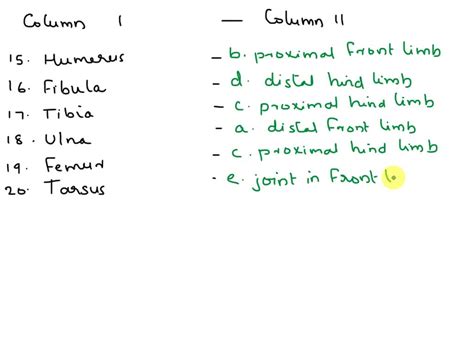 Column I — Column II
15. Humerus - b. proximal front limb
16. Fibula - d. distal hind limb
17. Tibia - c. proximal hind limb
18. Ulna - a. distal front limb
19. Femur - c. proximal hind limb
20. Tarsus - e. joint in front